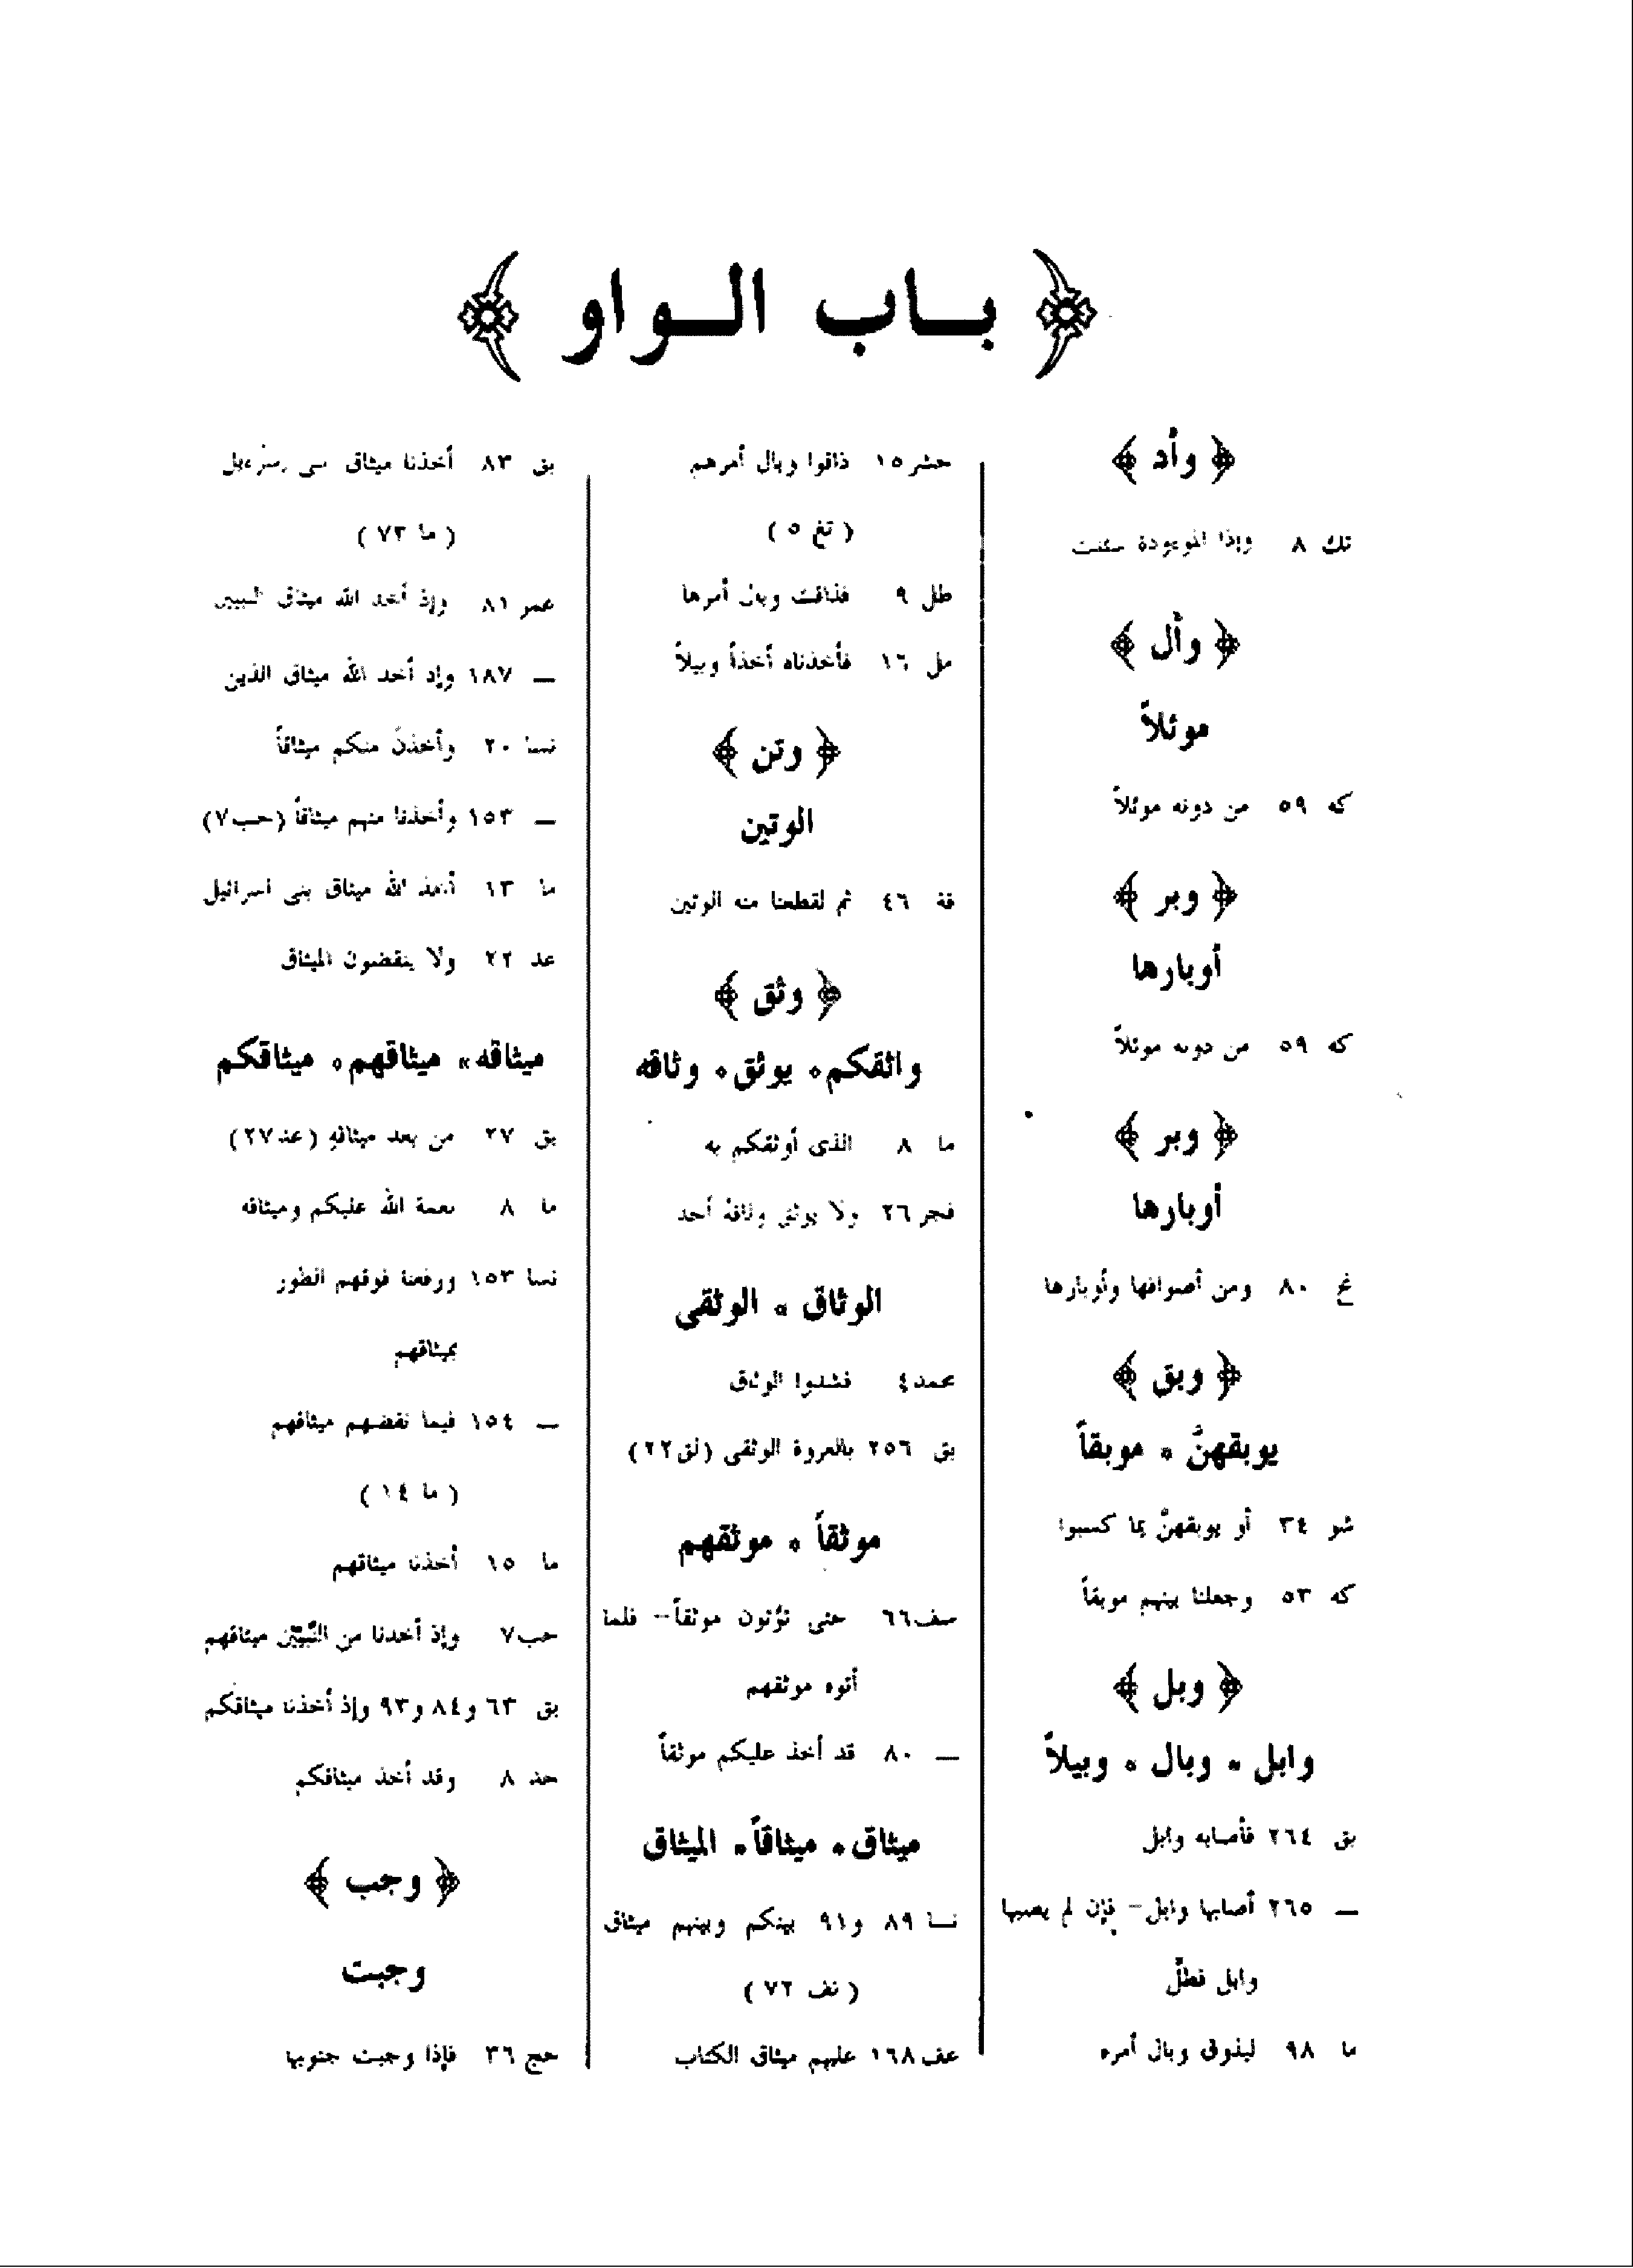 ﴿ بـاب الـواو ﴾
﴿ وأد ﴾
تك ٨ وإذا الموءودة سئلت
﴿ وأل ﴾
موئلاً
كه ٥٩ من دونه موئلاً
﴿ وبر ﴾
أوبارها
كه ٥٩ من دونه موئلاً
﴿ وبر ﴾
أوبارها
نح ٨٠ ومن أصوافها وأوبارها
﴿ وبق ﴾
يوبقهنَّ * موبقاً
شو ٣٤ أو يوبقهنَّ بما كسبوا
كه ٥٣ وجعلنا بينهم موبقاً
﴿ وبل ﴾
وابل * وبال * وبيلاً
بق ٢٦٤ فأصابه وابل
ــ ٢٦٥ أصابها وابل – فإن لم يصبها
وابل فطلٌّ
ما ٩٨ ليذوق وبال أمره
حشر ١٥ ذاقوا وبال أمرهم
( تغ ٥ )
طل ٩ فذاقت وبال أمرها
مل ١٦ فأخذناه أخذاً وبيلاً
﴿ وتن ﴾
الوتين
قة ٤٦ ثم لقطعنا منه الوتين
﴿ وثق ﴾
واثقكم * يوثق * وثاقه
ما ٨ الذى أوثقكم به
فجر ٢٦ ولا يوثق وثاقه أحد
الوثاق * الوثقى
محمد ٤ فشدوا الوثاق
بق ٢٥٦ بالعروة الوثقى (لق ٢٢)
موثقاً * موثقهم
سف ٦٦ حتى تؤتون موثقاً – فلما
أتوه موثقهم
ــ ٨٠ قد أخذ عليكم موثقاً
ميثاق * ميثاقاً * الميثاق
نسا ٨٩ و٩١ بينكم وبينهم ميثاق
( نف ٧٢ )
عف ١٦٨ عليهم ميثاق الكتاب
بق ٨٣ أخذنا ميثاق بنى إسرءيل
( ما ٧٣ )
عمر ٨١ وإذ أخذ الله ميثاق النبيين
ــ ١٨٧ وإذ أخذ الله ميثاق الذين
نسا ٢٠ وأخذنَ منكم ميثاقاً
ــ ١٥٣ وأخذنا منهم ميثاقاً (حب ٧)
ما ١٣ أخذ الله ميثاق بنى اسرائيل
عد ٢٢ ولا ينقضون الميثاق
ميثاقه * ميثاقهم * ميثاقكم
بق ٢٧ من بعد ميثاقه (عد ٢٧)
ما ٨ نعمة الله عليكم وميثاقه
نسا ١٥٣ ورفعنا فوقهم الطور
بميثاقهم
ــ ١٥٤ فبما نقضهم ميثاقهم
( ما ١٤ )
ما ١٥ أخذنا ميثاقهم
حب ٧ وإذ أخذنا من النَّبيّين ميثاقهم
بق ٦٣ و٨٤ و٩٣ وإذ أخذنا ميثاقكم
حد ٨ وقد أخذ ميثاقكم
﴿ وجب ﴾
وجبت
حج ٣٦ فإذا وجبت جنوبها